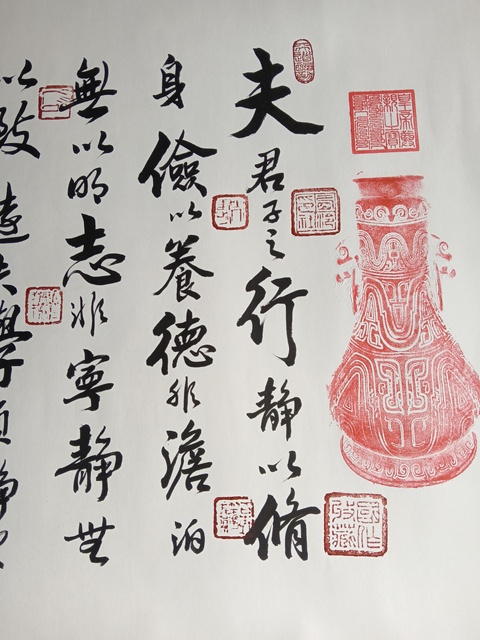 夫君子之行静以脩
身儉以養德非澹泊
無以明志非寧静無
以致遠夫學須静